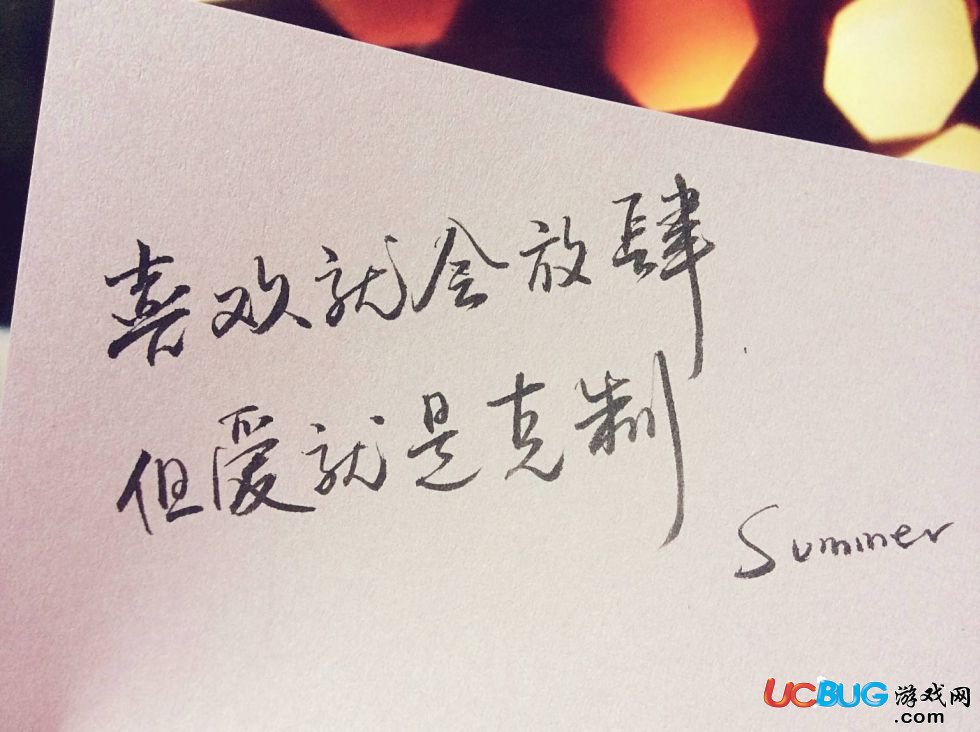 喜欢就会放肆
但爱就是克制
Summer
UCBUG游戏网
.com